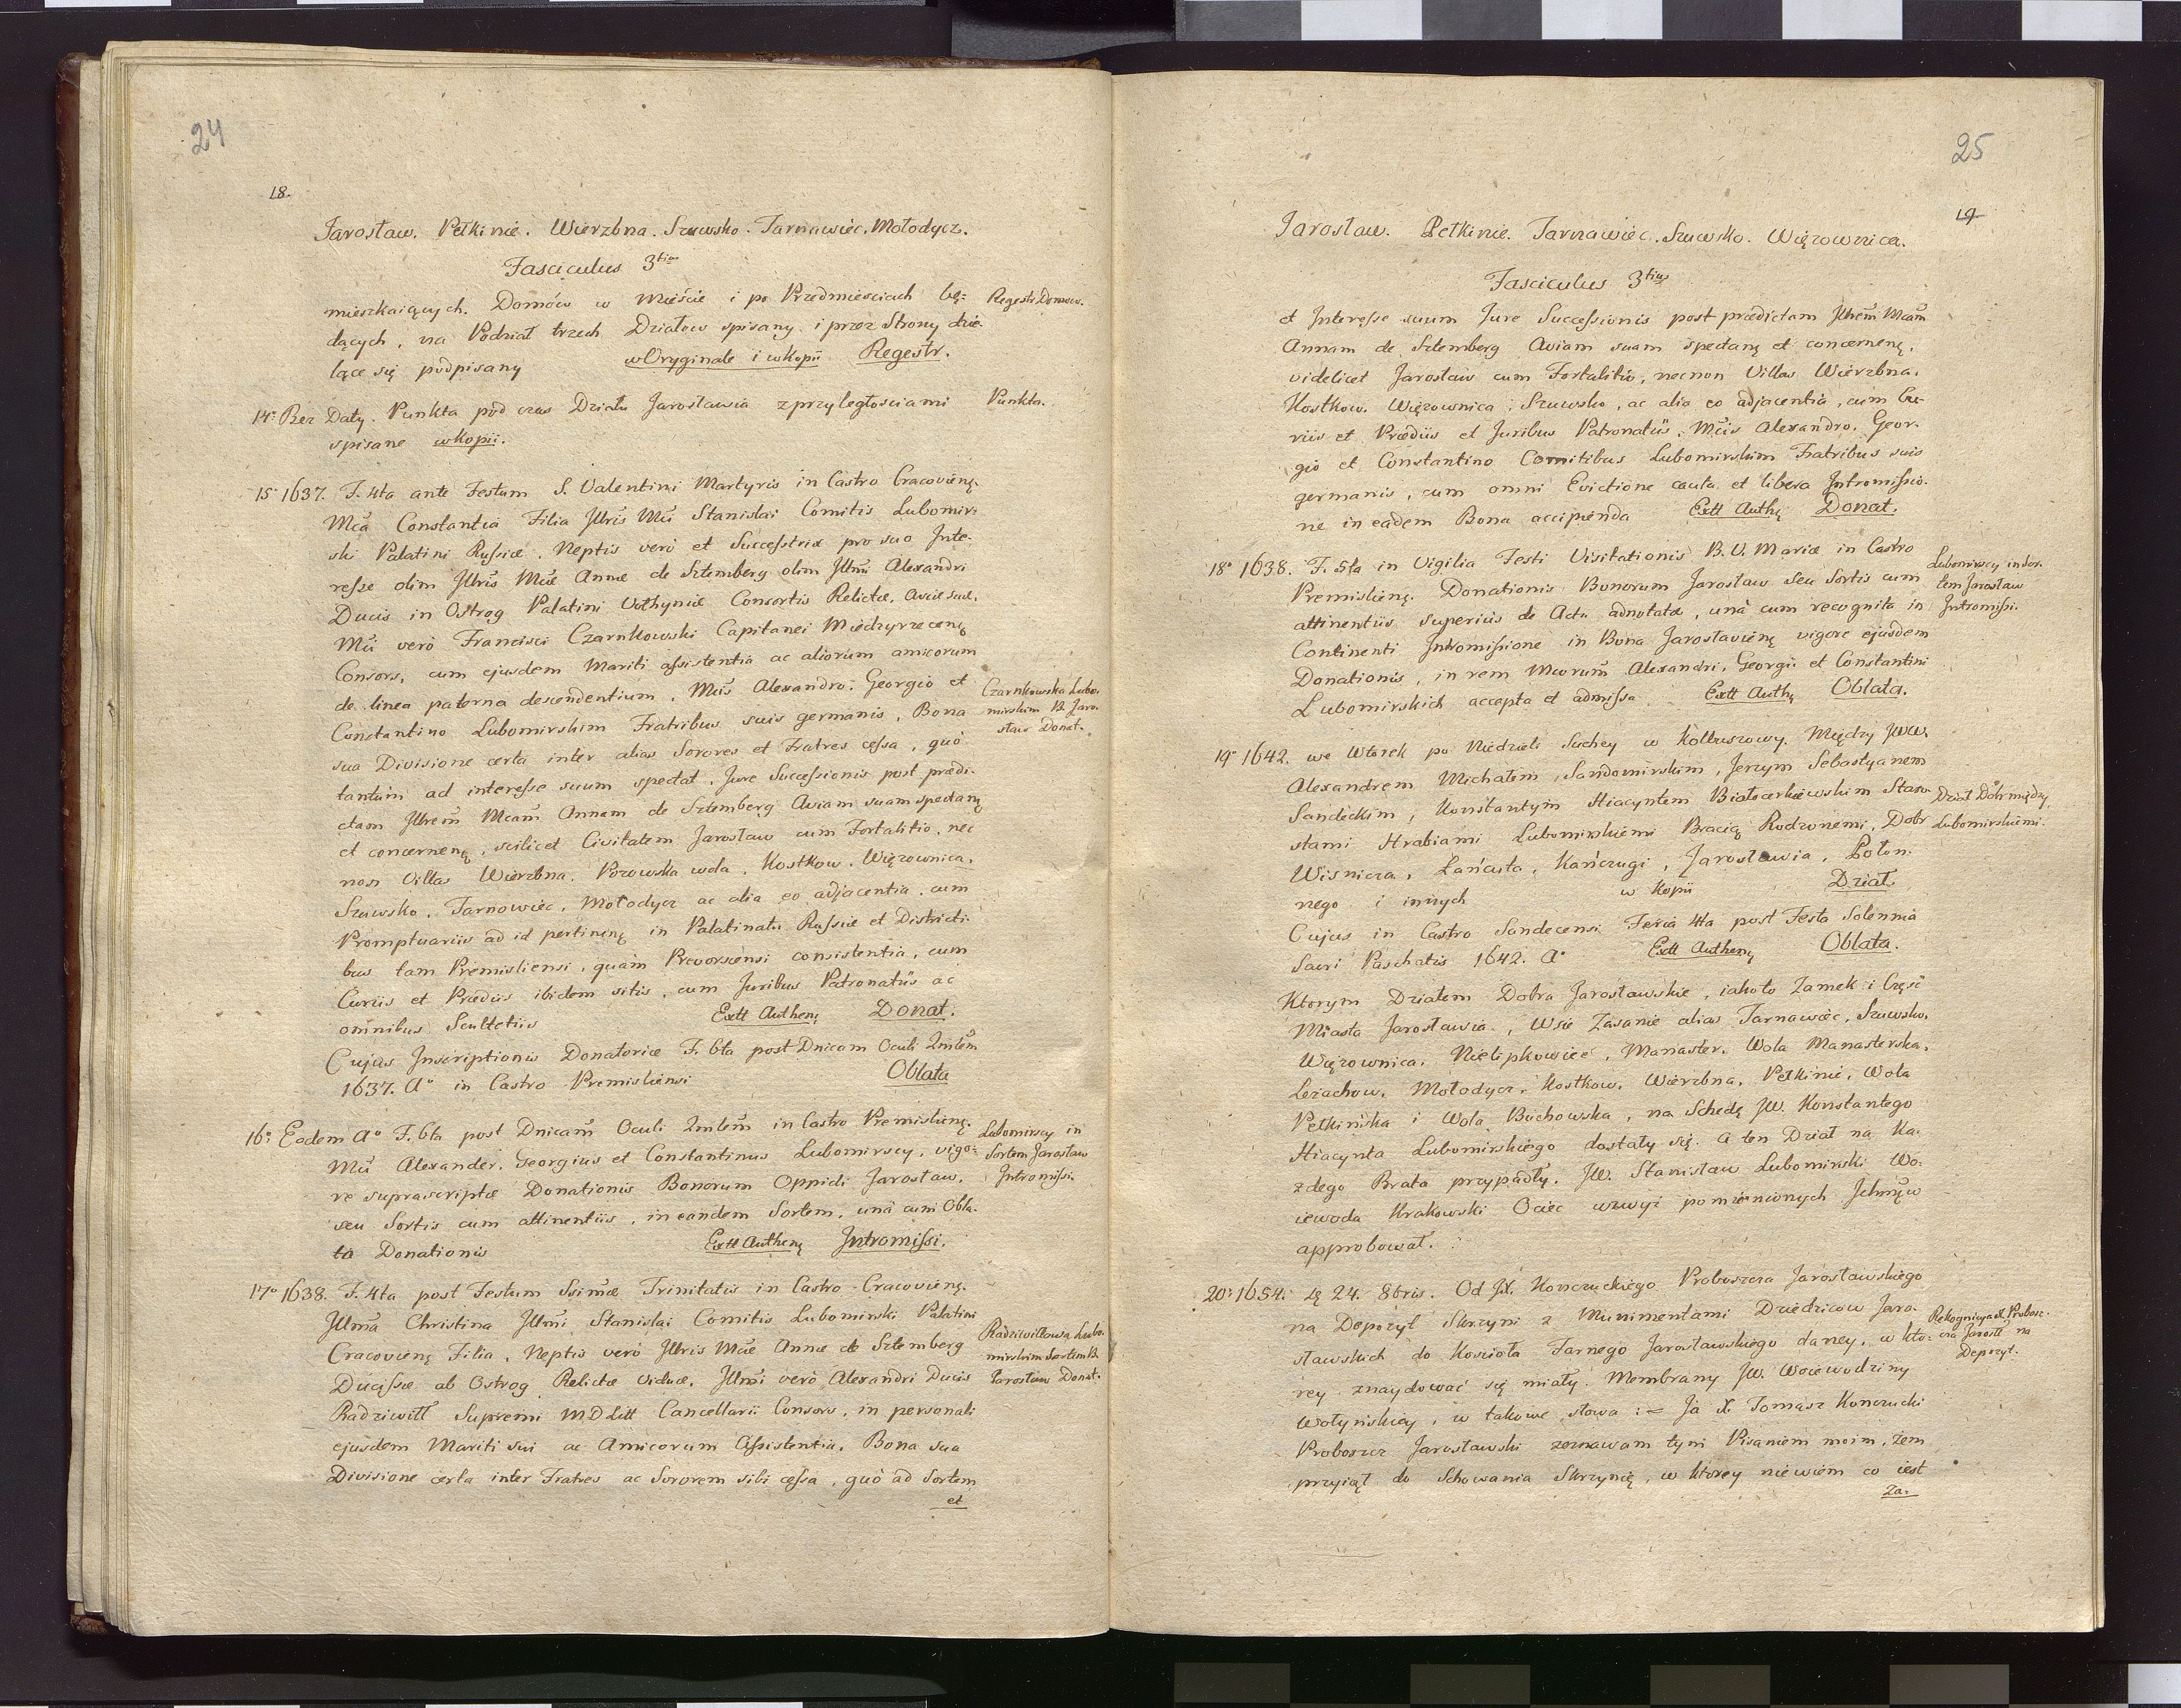 24
18.
Jarosław. Pełkinie. Wierzbna. Szuwsko. Tarnawiec. Mołodycz.
Fasciculus 3tius
mieszkaiących. Domów w Mieście i po Przedmieściach bę=
Regestr Domow.
dących, na Podział trzech Działow spisany i przez Strony dzie-
lące się podpisany w Oryginale i w Kopii Regestr.
14o Bez Daty. Punkta pod czas Działu Jarosławia z przyległościami
Punkta.
spisane w Kopii.
15o 1637. F. 4ta ante Festum S. Valentini Martyris in Castro Cracovieną.
Mca Constantia Filia Jllris Mci Stanislai Comitis Lubomir=
ski Palatini Russiæ. Neptis verò et Successtrix pro suo Inte-
resse olim Jllris Mcæ Annæ de Sztemberg olim Jllmi Alexandri
Ducis in Ostrog Palatini Vołhyniæ Consortis Relictæ. Aviæ suæ,
Mci verò Francisci Czarnkowski Capitanei Miedzyrzeceną
Consors, cum ejusdem Mariti assistentia ac aliorum amicorum
de linea paterna descendentium. Mcis Alexandro. Georgio et
Czarnkowska Lubo-
Constantino Lubomirskim Fratribus suis germanis, Bona
mirskim B. Jaro-
sua Divisione certa inter alias Sorores et Fratres cessa, quò
sław Donat.
tantùm ad interesse suum spectat. Jure Successionis post prædi-
ctam Jllrem Mcam Annam de Sztemberg Aviam suam spectaną
et concerneną, scilicet Civitatem Jarosław cum Fortalitio, nec
non Villas Wierzbna. Pozowska wola. Kostkow. Więzownica.
Szuwsko. Tarnowiec. Mołodycz ac alia eo adjacentia. cum
Promptuariis ad id pertineną in Palatinatu Russiæ et Districti-
bus tam Premisliensi, quàm Prevorscensi consistentia, cum
Curiis et Prædiis ibidem sitis, cum Juribus Patronatûs ac
omnibus Scultetiis Extt Autheną Donat.
Cujus Inscriptionis Donatoriæ F. 6ta post Dnicam Oculi Qmlem
1637. Ao in Castro Premisliensi Oblata
16o Eodem Ao F. 6ta post Dnicam Oculi Qmlem in Castro Premislieną.
Lubomirscy in
Mci Alexander. Georgius et Constantinus Lubomirscy, vigo=
Sortem Jarosław
re suprascriptæ Donationis Bonorum Oppidi Jarosław.
Intromissi.
seu Sortis cum attinentiis, in eandem Sortem, unà cum Obla-
ta Donationis Extt Autheną Intromissi.
17o 1638. F. 4ta post Festum Ssimæ Trinitatis in Castro Cracovieną.
Jllma Christina Jllmi Stanislai Comitis Lubomirski Palatini
Cracovieną Filia. Neptis verò Jllris Mcæ Annæ de Sztemberg
Radziwiłłowa Lubo-
mirskim Sortem B.
Ducissæ ab Ostrog Relictæ Viduæ. Jllmi verò Alexandri Ducis
Jarosław Donat.
Radziwiłł Supremi M D Litt Cancellarii Consors, in personali
ejusdem Mariti sui ac Amicorum Assistentia. Bona sua
Divisione certa inter Fratres ac Sororem sibi cessa, quò ad Sortem
et
25
19
Jarosław. Pełkinie. Tarnawiec. Szuwsko. Więzownica.
Fasciculus 3tius
et Interesse suum Jure Successionis post prædictam Jllrem Mcam
Annam de Sztemberg Aviam suam spectaną et concerneną.
videlicet Jarosław cum Fortalitio, necnon Villas Wierzbna.
Kostkow. Więzownica. Szuwsko, ac alia eo adjacentia, cum Cu-
riis et Prædiis et Juribus Patronatûs. Mcis Alexandro. Geor-
gio et Constantino Comitibus Lubomirskim Fratribus suis
germanis, cum omni Evictione cauta et libera Intromissio-
ne in eadem Bona accipienda Extt Authą Donat.
18o 1638. F. 5ta in Vigilia Festi Visitationis B. V. Mariæ in Castro
Lubomirscy in Sor-
Premislieną. Donationis Bonorum Jarosław seu Sortis cum
tem Jarosław
attinentiis superiùs de Actu adnotatæ, unà cum recognita in
Intromissi.
Continenti Intromissione in Bona Jarosławieną vigore ejusdem
Donationis, in rem Mcorum Alexandri. Georgii et Constantini
Lubomirskich accepta et admissa Extt Authą Oblata.
19o 1642. we Wtorek po Niedzieli Suchey w Kolbuszowy. Między JWW.
Alexandrem Michałem, Sandomirskim, Jerzym Sebastyanem
Sandeckim, Konstantym Hiacyntem Białocerkiewskim Staro-
Dział Dóbr między
stami Hrabiami Lubomirskiemi Bracią Rodzonemi. Dobr
Lubomirskiemi.
Wisnicza, Łańcuta, Kańczugi, Jarosławia, Połon-
nego i innych w Kopii Dział
Cujus in Castro Sandecensi Feria 4ta post Festa Solennia
Sacri Paschatis 1642. Ao Extt Autheną Oblata.
Ktorym Działem Dobra Jarosławskie, iakoto Zamek i Część
Miasta Jarosławia, Wsie Zasanie alias Tarnawiec, Szuwsko.
Więzownica. Nielipkowice, Manaster. Wola Manasterska.
Leżachow. Mołodycz. Kostkow. Wierzbna. Pełkinie. Wola
Pełkińska i Wola Buchowska, na Schedę JW. Konstantego
Hiacynta Lubomirskiego dostały się. A ten Dział na Ka-
zdego Brata przypadły. JW. Stanisław Lubomirski Wo-
iewoda Krakowski Ociec wzwyż pomienionych Jchmęw
approbował.
20o 1654. dą 24. 8bris. Od JX. Konczuckiego Proboszcza Jarosławskiego
na Depozyt Skrzyni z Munimentami Dziedzicow Jaro-
Rekognicya X. Probosz-
sławskich do Kosciola Farnego Jarosławskiego daney, w kto-
cza Jarosł na
rey znaydować się miały. Membrany JW. Woiewodziny
Depozyt.
Wołyńskiey, w takowe słowa := Ja X. Tomasz Konczucki
Proboszcz Jarosławski zeznawam tym Pisaniem moim, żem
przyiął do Schowania Skrzynię, w ktorey niewiem co iest
Za-